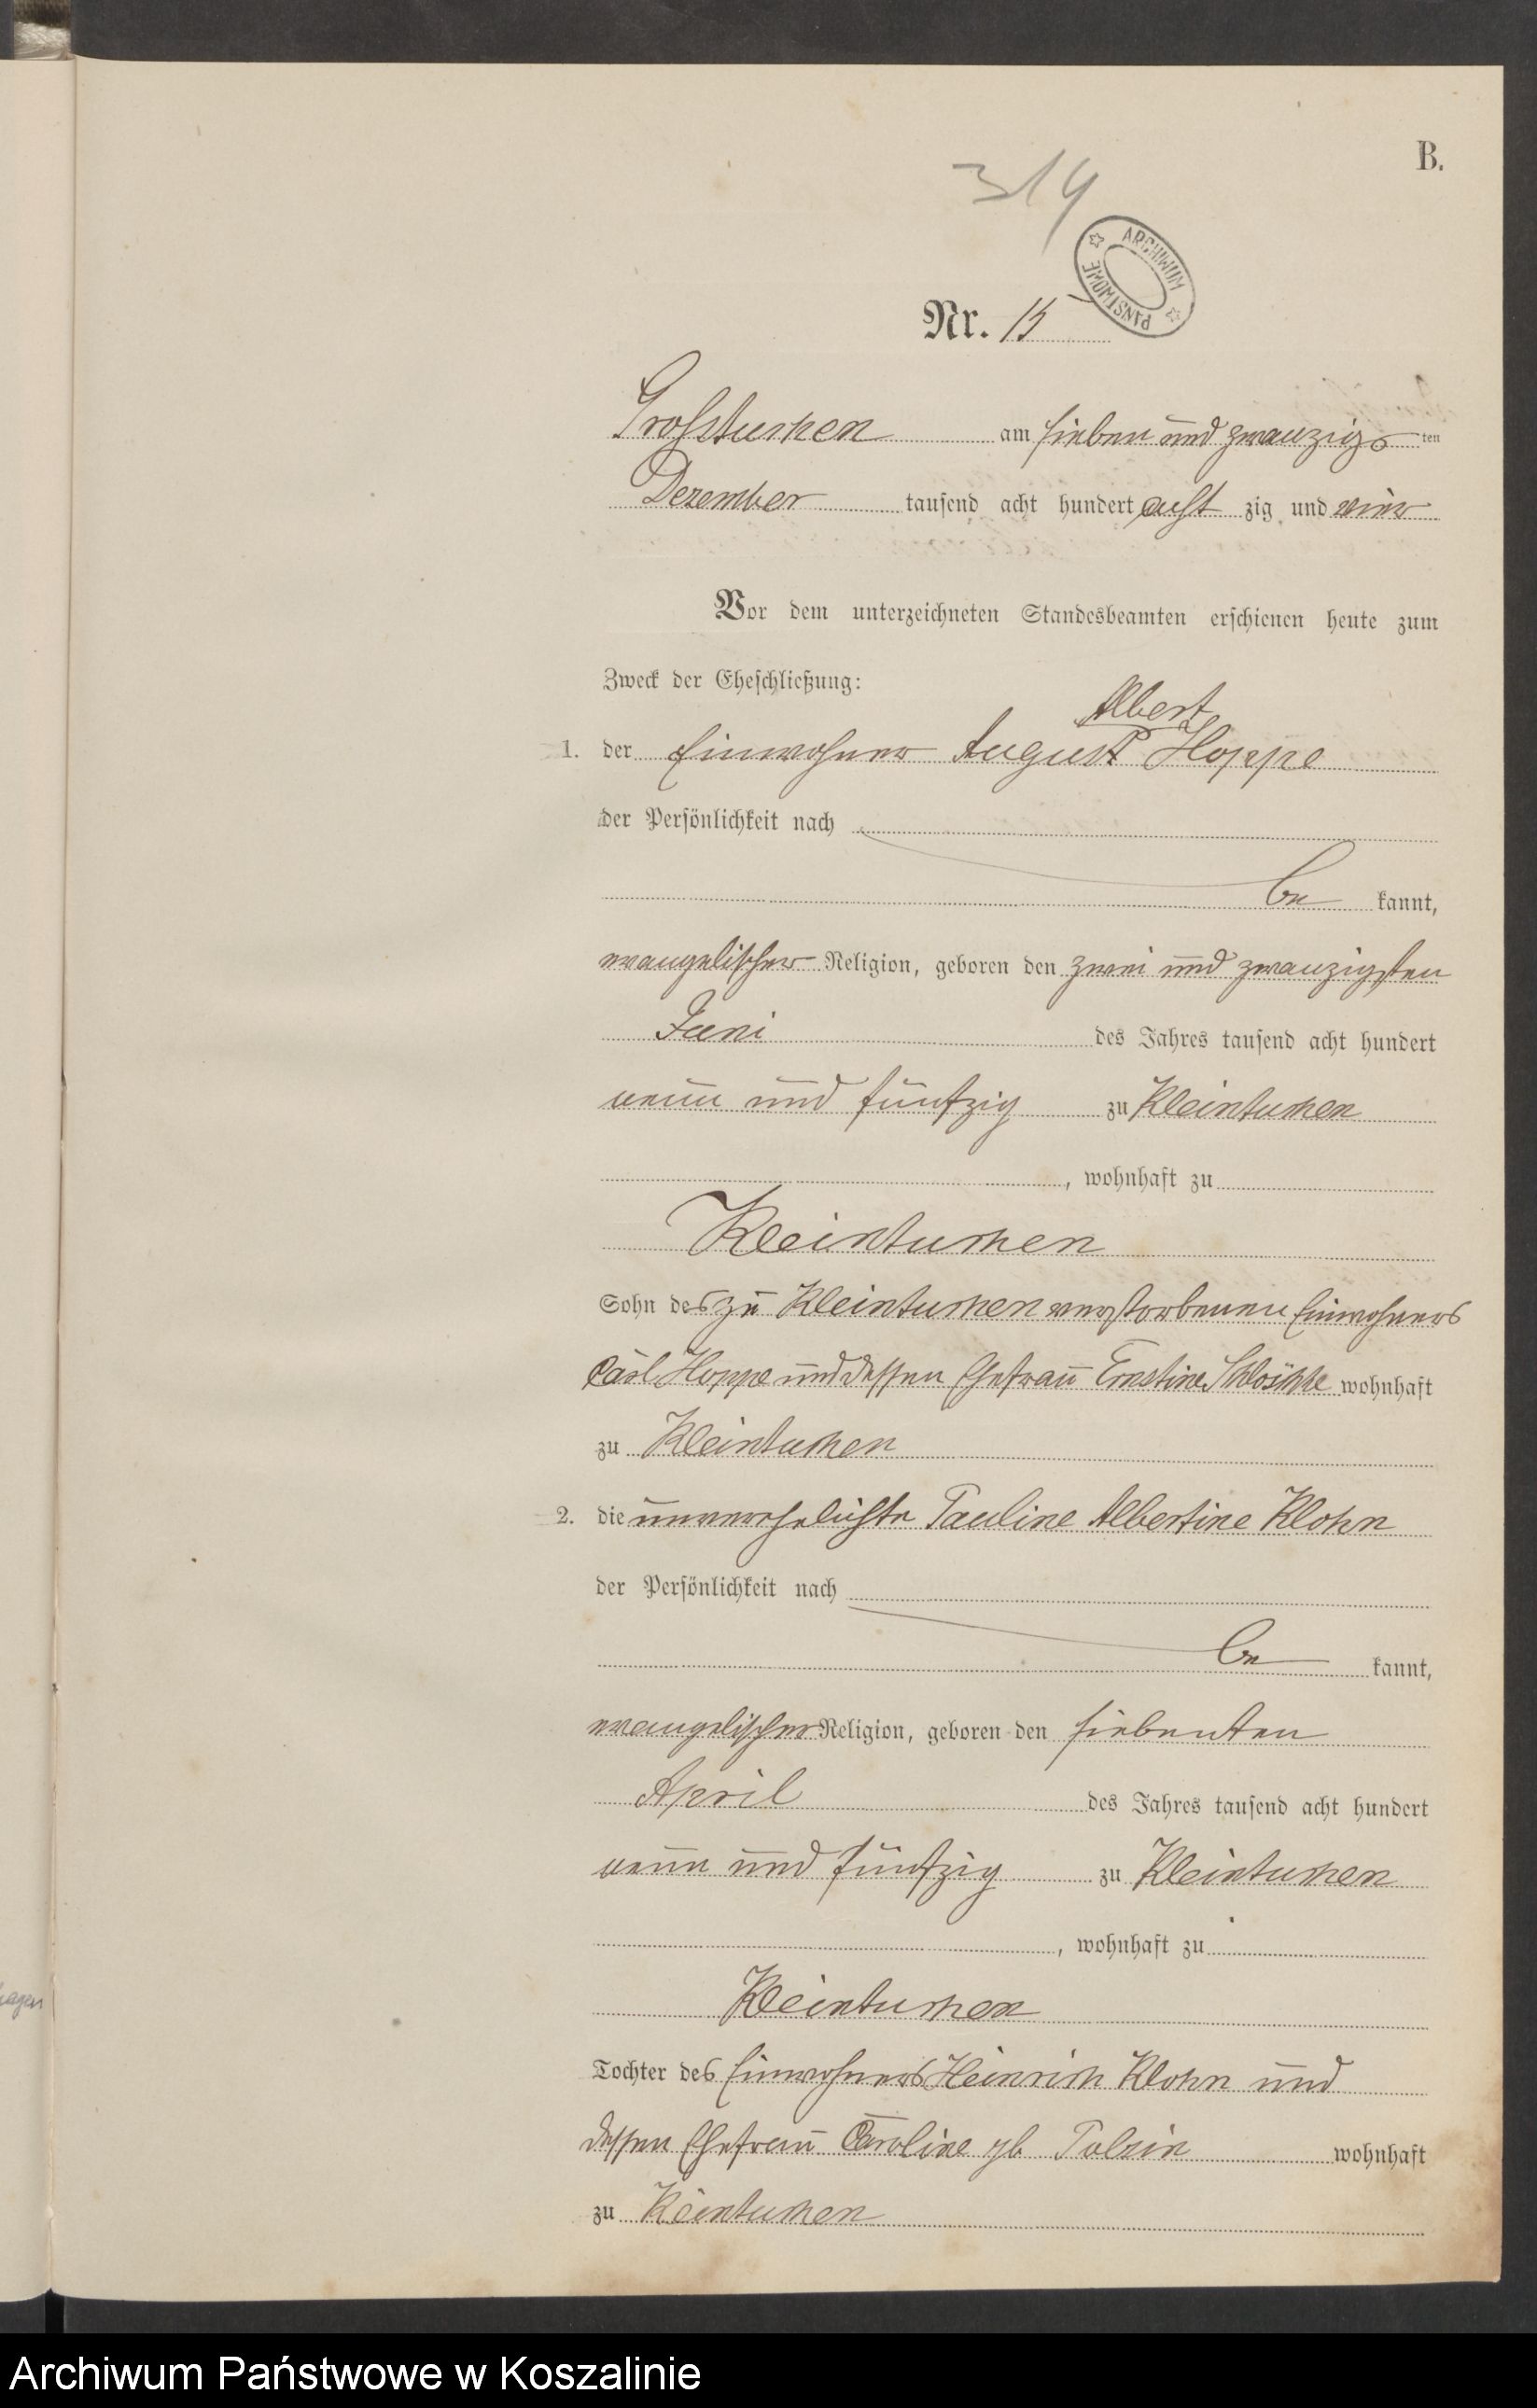 B.
314
ARCHIWUM PAŃSTWOWE
Nr. 15
Grosstuchen am sieben und zwanzigsten
Dezember tausend acht hundert acht zig und vier
Vor dem unterzeichneten Standesbeamten erschienen heute zum
Zweck der Eheschließung:
Albert
1. der Einwohner August Hoppe
der Persönlichkeit nach
be kannt,
evangelischer Religion, geboren den zwei und zwanzigsten
Juni des Jahres tausend acht hundert
neun und fünfzig zu Kleintuchen
, wohnhaft zu
Kleintuchen
Sohn des zu Kleintuchen verstorbenen Einwohners
Carl Hoppe und dessen Ehefrau Ernestine wohnhaft
zu Kleintuchen
2. die unverehelichte Pauline Albertine Klohn
der Persönlichkeit nach
be kannt,
evangelischer Religion, geboren den siebenten
April des Jahres tausend acht hundert
neun und fünfzig zu Kleintuchen
, wohnhaft zu
Kleintuchen
Tochter des Einwohners Heinrich Klohn und
dessen Ehefrau Caroline gb wohnhaft
zu Kleintuchen
Archiwum Państwowe w Koszalinie